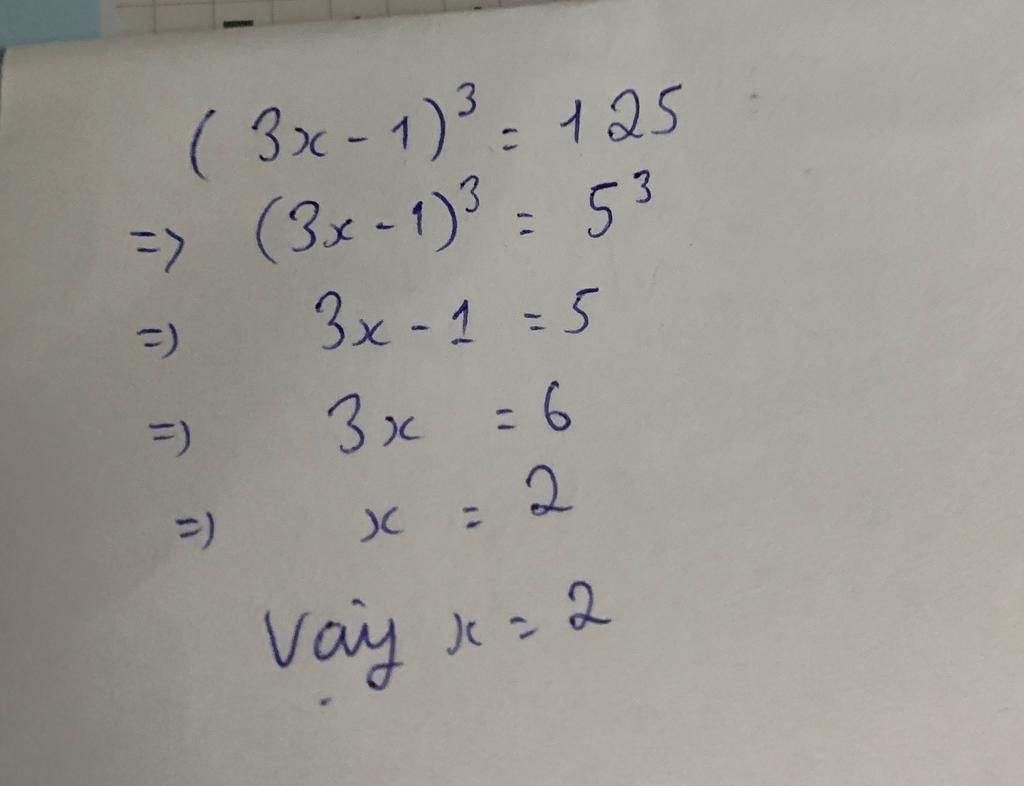 (3x - 1)³ = 125
=> (3x - 1)³ = 5³
=> 3x - 1 = 5
=> 3x = 6
=> x = 2
Vậy x = 2